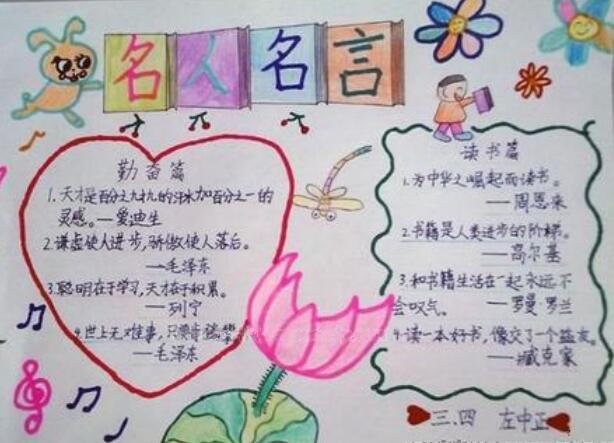 名人名言
勤奋篇
1.天才是百分之九十九的汗水加百分之一的
灵感。—爱迪生
2.谦虚使人进步,骄傲使人落后。
—毛泽东
3.聪明在于学习,天才在于积累。
—列宁
4.世上无难事,只要肯
—毛泽东
读书篇
1.为中华之崛起而读书。
—周恩来
2.书籍是人类进步的阶梯。
—高尔基
3.和书籍生活在一起,永远不
会叹气。—罗曼·罗兰
4.读一本好书,像交了一个益友。
—臧克家
三.四 左中正